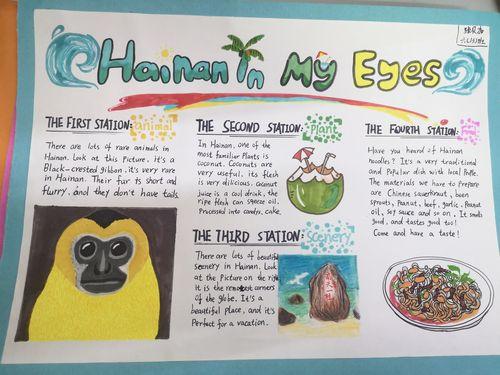 Hainan In My Eyes
THE FIRST STATION: animal
There are lots of rare animals in
Hainan. Look at this picture. it's a
Black-crested gibbon. it's very rare
in Hainan. Their fur is short and
flurry. and they don't have tails.
THE SECOND STATION: plant
In Hainan, one of the
most familiar plants is
coconut. Coconuts are
very useful. its flesh
is very dilicious. coconut
Juice is a cool drink, the
ripe flesh can sqeeze oil.
Processed into candy, cake.
THE THIRD STATION: scenery
There are lots of beautiful
scenery in Hainan. Look
at the picture on the right
It is the remotest corners
of the globe. It's a
beautiful place, and it's
Perfect for a vacation.
THE FOURTH STATION:
Have you heard of Hainan
noodles? It's a very traditional
and Popular dish with local People.
The materials we have to prepare
are Chinese sauerkraut, been
sprouts, Peanut, beef, garlic, Peanut
oil, soy sauce and so on. It smells
good, and tastes good too!
Come and have a taste!